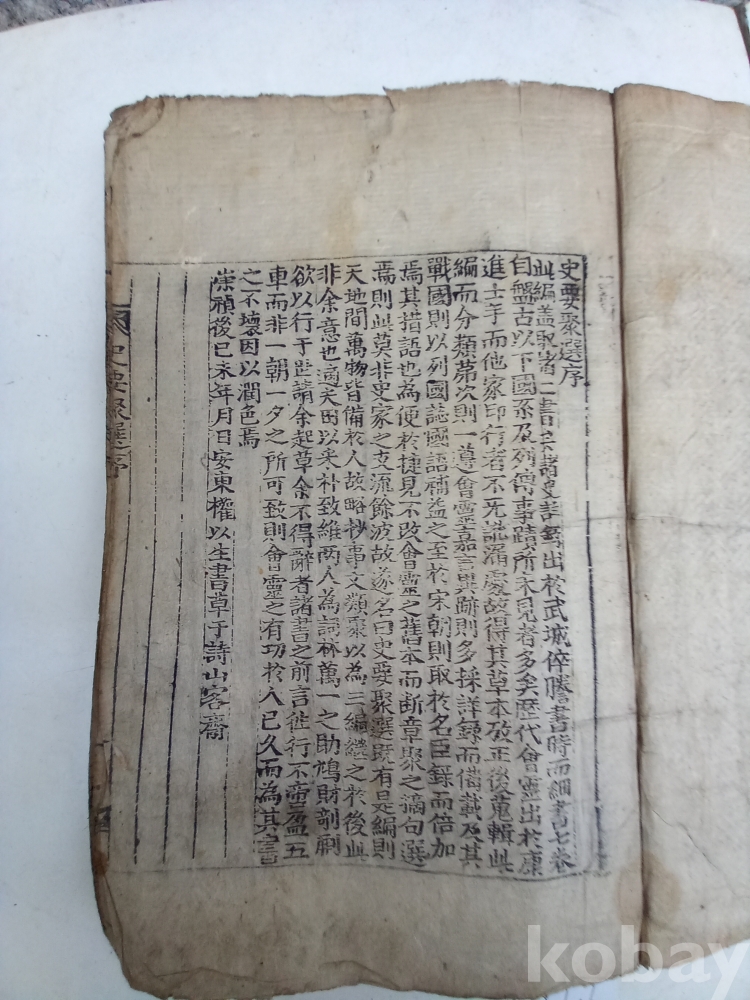 史要聚選序
此編盖取諸二書三諸史註錄出於武城倅謄書時而細書七卷
自盤古以下國系及列傳事蹟所未見者多矣歷代會靈出於康
進士手而他家印行者不免訛漏處故得其草本攷正後蒐輯此
編而分類第次則一遵會靈嘉言異跡則多採詳錄而備載及其
戰國則以列國誌國語補益之至於宋朝則取於名臣錄而倍加
焉其措語也為便於捷見不改會靈之舊本而断章聚之摘句選
焉則此莫非史家之支流餘波故遂名曰史要聚選既有是編則
天地間萬物皆備於人故略抄事文類聚以為三編繼之於後此
非余意也適夫田以采朴致維两人為詞林萬一之助鳩財剞劂
欲以行于世請余起草余不得辭者諸書之前言徃行不啻盈五
車而非一朝一夕之所可致則會靈之有功於人已久而為其書
之不壞因以潤色焉
崇禎後己未年月日安東權以生書草于詩山客齋
史要聚選序
kobay